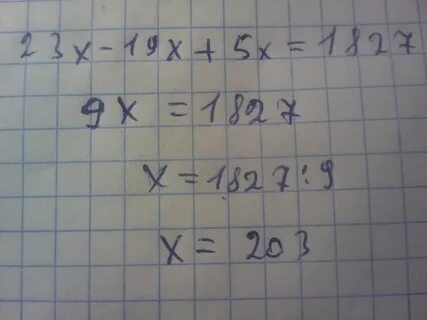 23x-19x+5x=1827
9x =1827
x=1827:9
x= 203